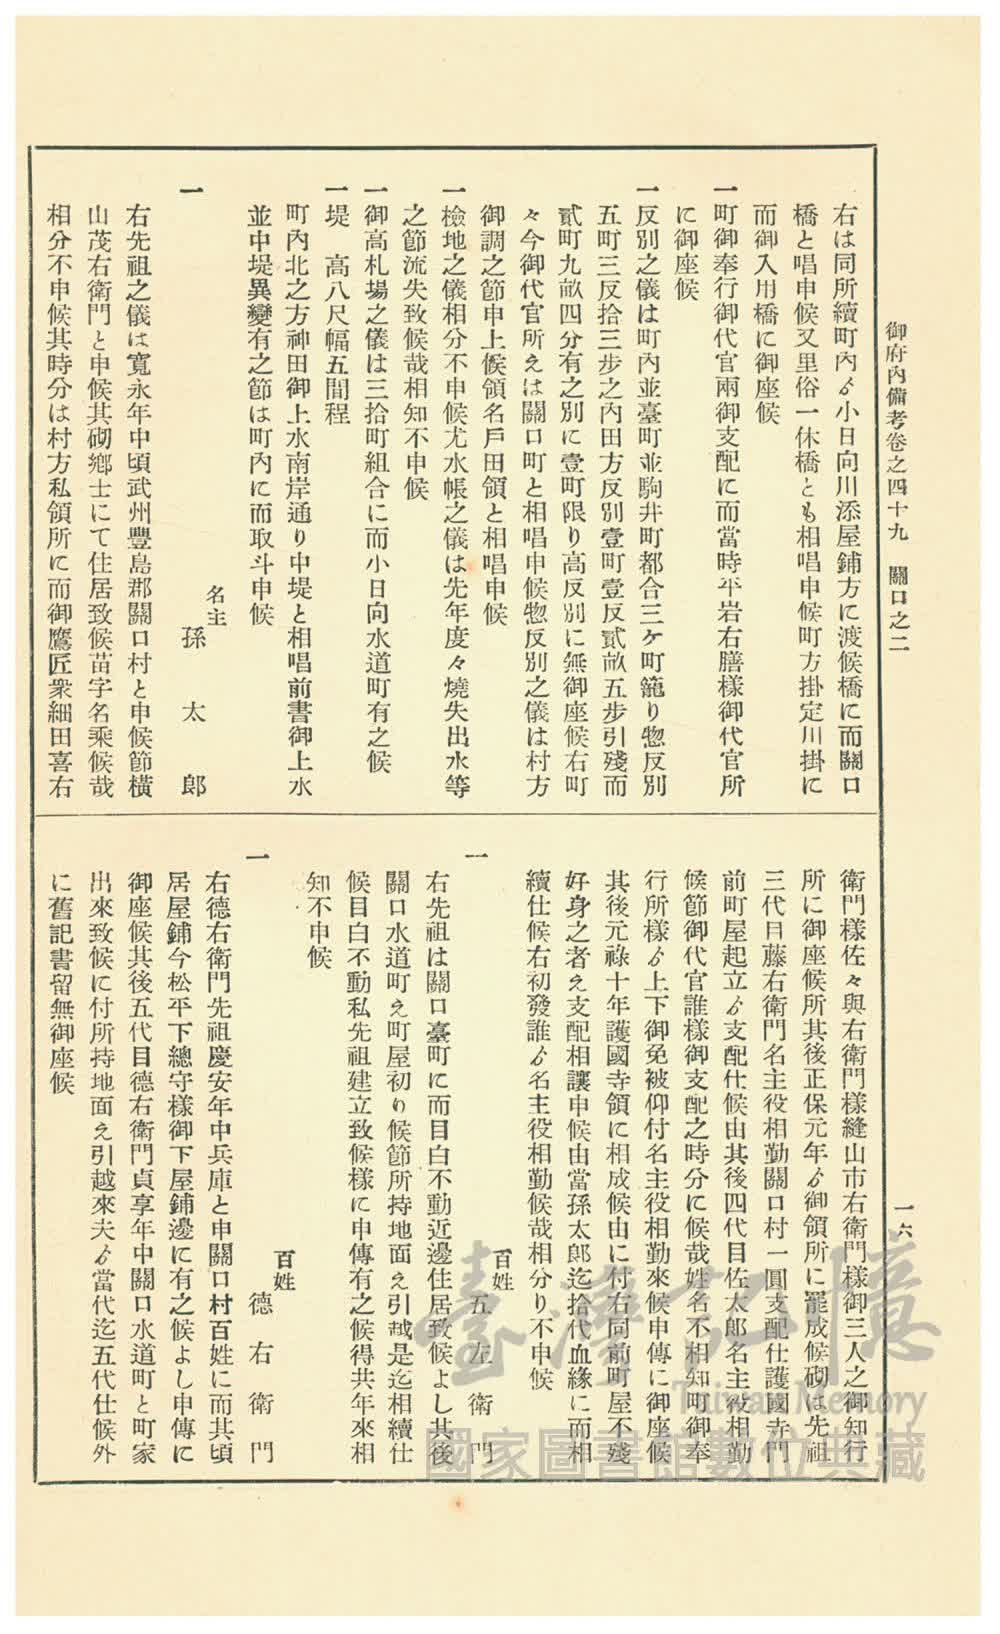 御府內備考卷之四十九　關口之二
一六
右は同所續町內ゟ小日向川添屋鋪方に渡候橋に而關口
橋と唱申候又里俗一休橋とも相唱申候町方掛定川掛に
而御入用橋に御座候
一町御奉行御代官兩御支配に而當時平岩右膳樣御代官所
に御座候
一反別之儀は町內並臺町並駒井町都合三ケ町籠り惣反別
五町三反拾三步之內田方反別壹町壹反貳畝五步引殘而
貳町九畝四分有之別に壹町限り高反別に無御座候右町
々今御代官所えは關口町と相唱申候惣反別之儀は村方
御調之節申上候領名戶田領と相唱申候
一檢地之儀相分不申候尤水帳之儀は先年度々燒失出水等
之節流失致候哉相知不申候
一御高札場之儀は三拾町組合に而小日向水道町有之候
一堤　高八尺幅五間程
町內北之方神田御上水南岸通り中堤と相唱前書御上水
並中堤異變有之節は町內に而取斗申候
一　名主　孫太郞
右先祖之儀は寬永年中頃武州豐島郡關口村と申候節橫
山茂右衛門と申候其砌鄉士にて住居致候苗字名乘候哉
相分不申候其時分は村方私領所に而御鷹匠衆細田喜右
衛門樣佐々與右衛門樣縫山市右衛門樣御三人之御知行
所に御座候所其後正保元年ゟ御領所に罷成候砌は先祖
三代目藤右衛門名主役相勤關口村一圓支配仕護國寺門
前町屋起立ゟ支配仕候由其後四代目佐太郞名主役相勤
候節御代官誰樣御支配之時分に候哉姓名不相知町御奉
行所樣ゟ上下御免被仰付名主役相勤來候申傳に御座候
其後元祿十年護國寺領に相成候由に付右同前町屋不殘
好身之者え支配相讓申候由當孫太郞迄拾代血緣に而相
續仕候右初發誰ゟ名主役相勤候哉相分り不申候
一　百姓　五左衛門
右先祖は關口臺町に而目白不動近邊住居致候よし其後
關口水道町え町屋初り候節所持地面え引越是迄相續仕
候目白不動私先祖建立致候樣に申傳有之候得共年來相
知不申候
一　百姓　德右衛門
右德右衛門先祖慶安年中兵庫と申關口村百姓に而其頃
居屋鋪今松平下總守樣御下屋鋪邊に有之候よし申傳に
御座候其後五代目德右衛門貞享年中關口水道町と町家
出來致候に付所持地面え引越來夫ゟ當代迄五代仕候外
に舊記書留無御座候
臺灣記憶
Taiwan Memory
國家圖書館數位典藏